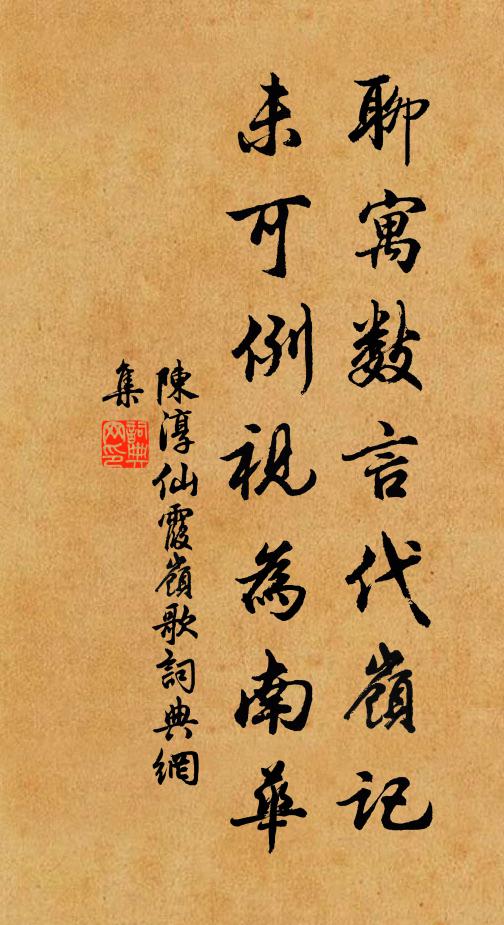 聊寓数言代嶺記
未可例視為南華
陳淳仙霞嶺歌詞典網
集
詞典
网印